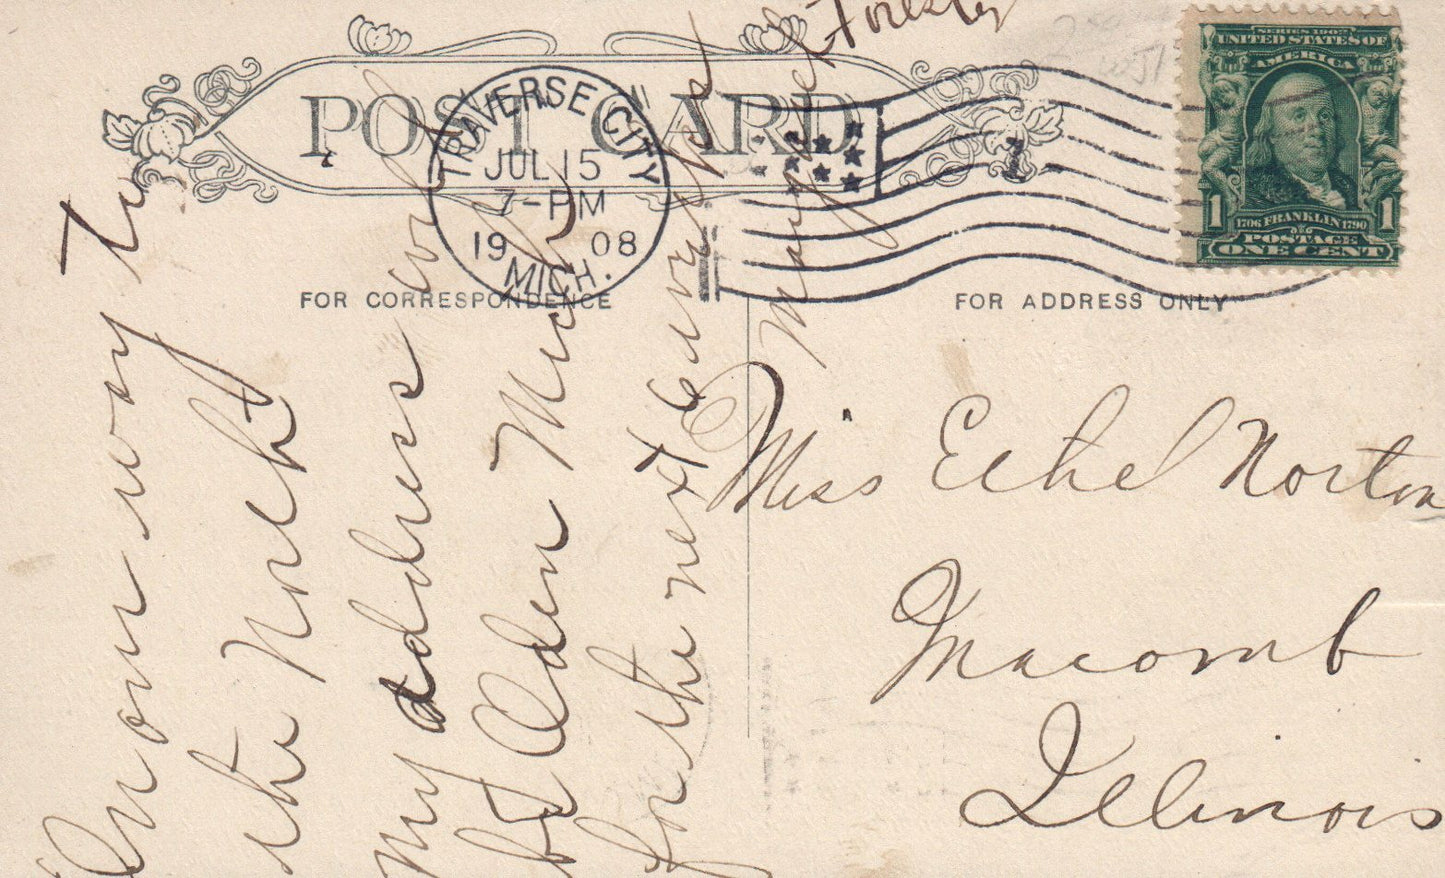 POST CARD
TRAVERSE CITY
JUL 15
7-PM
1908
MICH.
1
SERIES 1902
UNITED STATES OF
AMERICA
1 1
1706 FRANKLIN 1790
POSTAGE
ONE CENT
FOR CORRESPONDENCE
FOR ADDRESS ONLY
On our way to
the North
my address will
be Alden Mich
for the next
Margaret Forester
Miss Ethel Norton
Macomb
Illinois